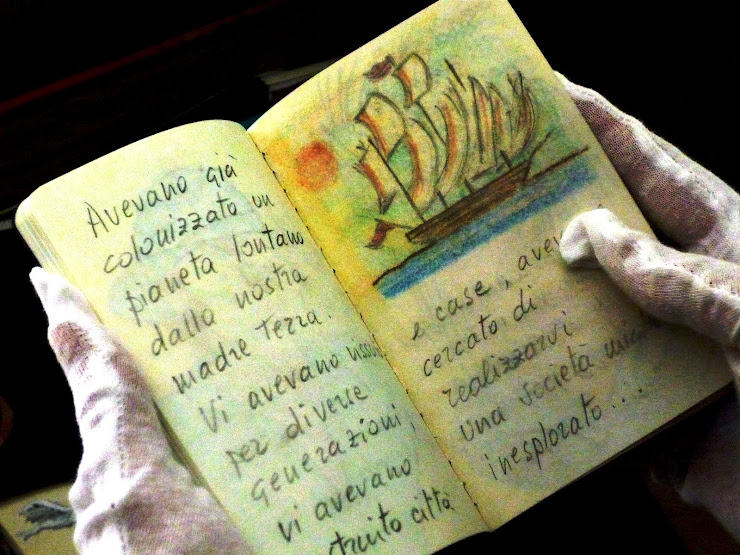 Avevano già
colonizzato un
pianeta lontano
dalla nostra
madre Terra.
Vi avevano
per diverse
generazioni,
vi avevano
città
e case,
cercato di
realizzarvi
una società
inesplorato...